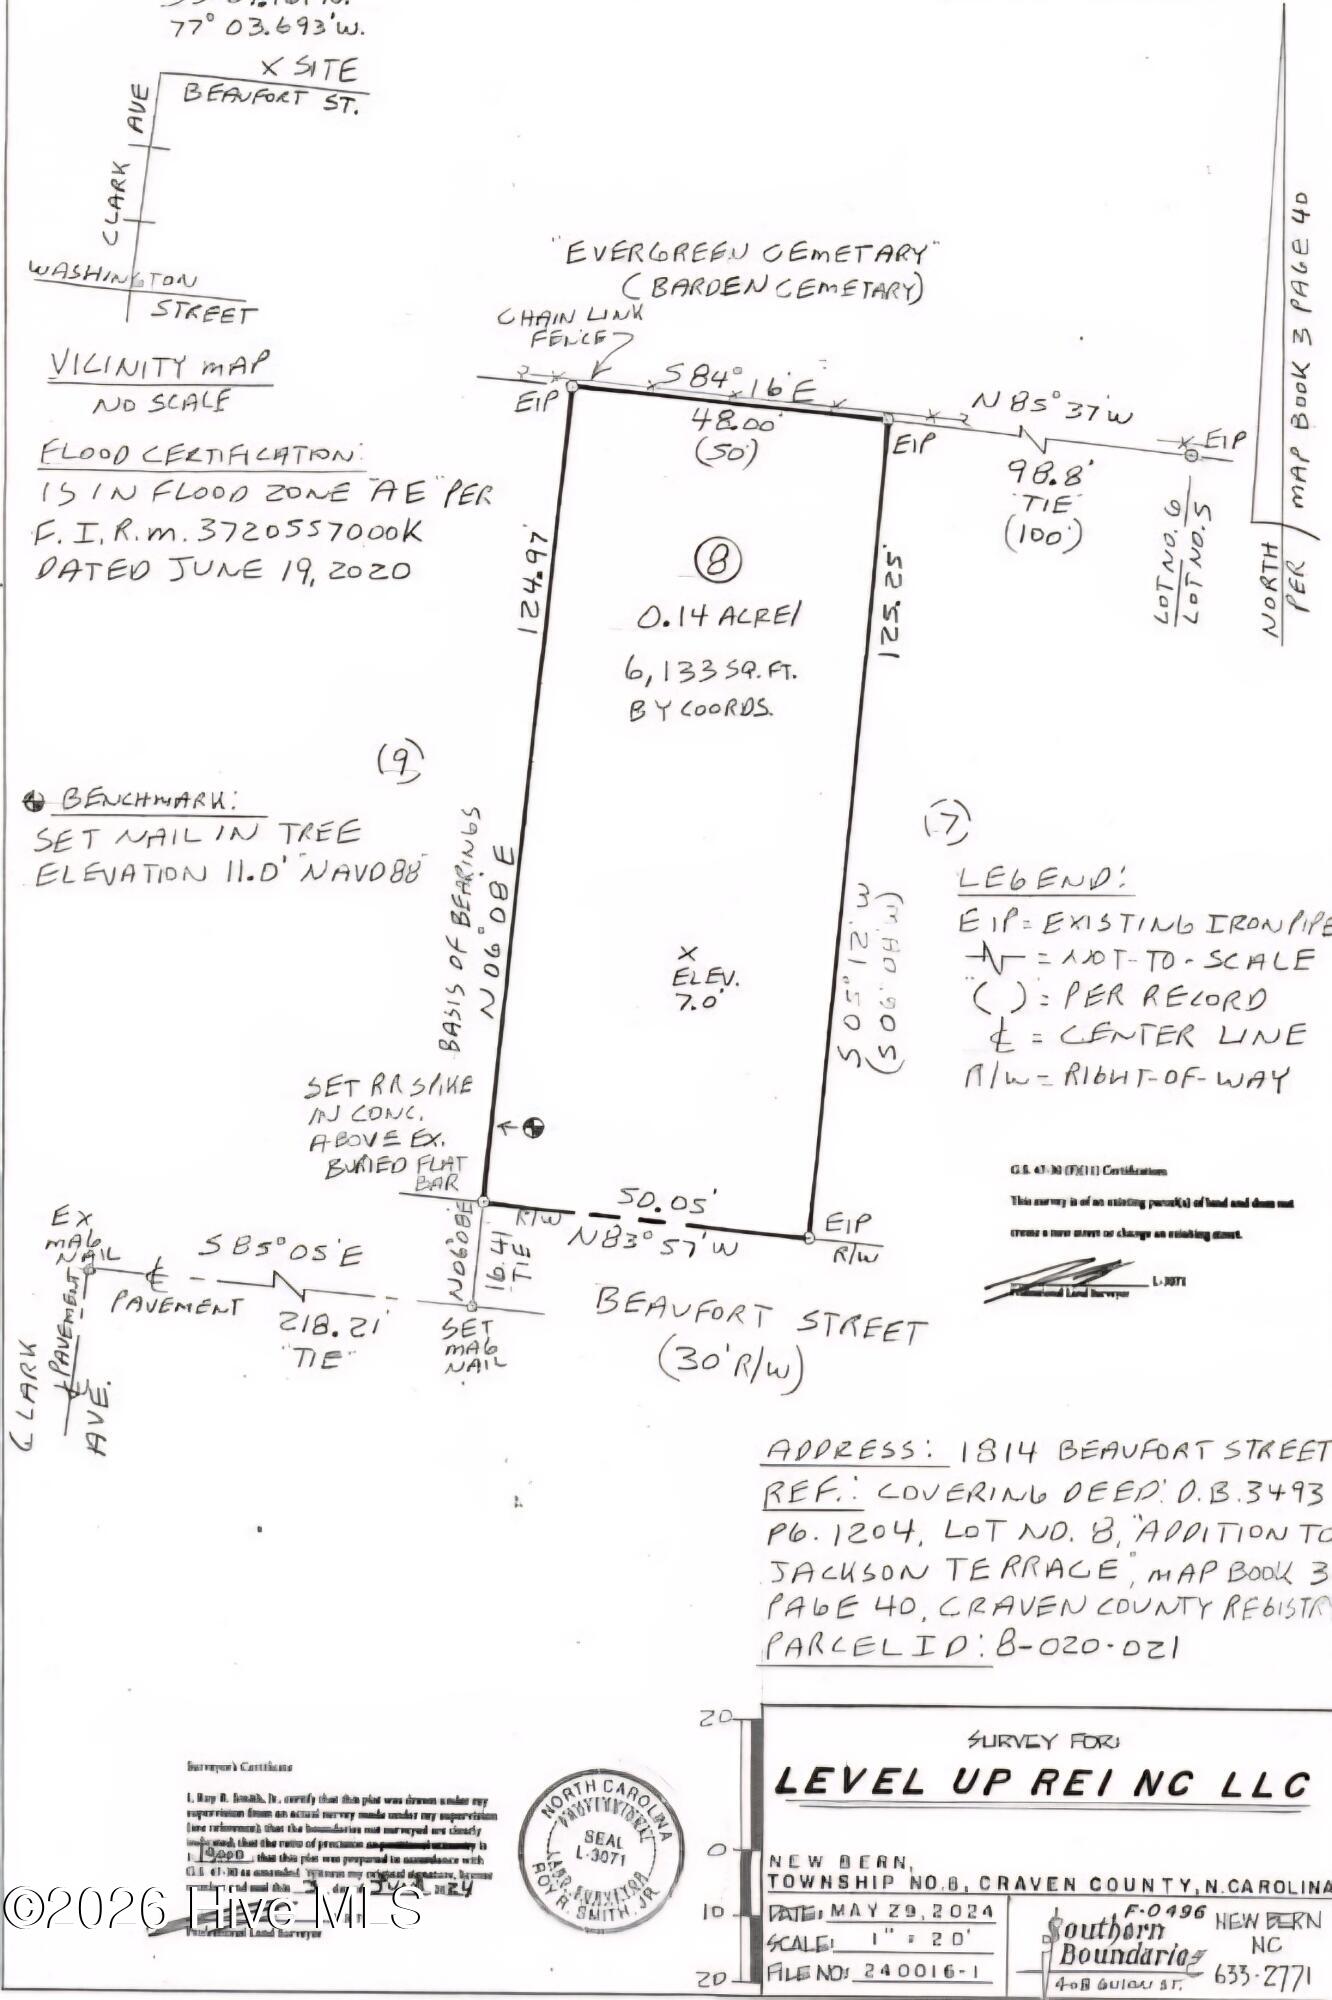 77° 03.693'W.
X SITE
BEAUFORT ST.
CLARK AVE
WASHINGTON
STREET
VICINITY MAP
NO SCALE
FLOOD CERTIFICATION:
IS IN FLOOD ZONE "AE" PER
F.I.R.M. 3720557000K
DATED JUNE 19, 2020
"EVERGREEN CEMETARY"
(BARDEN CEMETARY)
CHAIN LINK
FENCE
S84°16'E
48.00'
(50')
EIP
EIP
N85°37'W
98.8'
"TIE"
(100')
EIP
LOT NO. 6
LOT NO. 5
NORTH
PER MAP BOOK 3 PAGE 40
124.97'
125.25'
8
0.14 ACRE/
6,133 SQ. FT.
BY COORDS.
(9)
(7)
BENCHMARK:
SET NAIL IN TREE
ELEVATION 11.0' "NAVD88"
BASIS OF BEARINGS
N06°08'E
S05°12'W
(S06°04'W)
X
ELEV.
7.0'
LEGEND:
EIP = EXISTING IRON PIPE
= NOT-TO-SCALE
"( )" = PER RECORD
℄ = CENTER LINE
R/W = RIGHT-OF-WAY
SET RR SPIKE
IN CONC.
ABOVE EX.
BURIED FLAT
BAR
G.S. 47-30 (F)(11) Certifications
This survey is of an existing parcel(s) of land and does not
create a new street or change an existing street.
L-3071
Professional Land Surveyor
R/W
50.05'
N83°57'W
EIP
R/W
N06°08'E
16.41'
TIE
EX
MAG
NAIL
S85°05'E
℄
PAVEMENT
218.21'
"TIE"
SET
MAG
NAIL
℄ PAVEMENT
CLARK AVE.
BEAUFORT STREET
(30' R/W)
ADDRESS: 1814 BEAUFORT STREET
REF.: COVERING DEED: D.B. 3493
PG. 1204, LOT NO. 8, "ADDITION TO
JACKSON TERRACE", MAP BOOK 3
PAGE 40, CRAVEN COUNTY REGISTRY
PARCEL ID: 8-020-021
Surveyor's Certificate
I, Roy R. Smith, Jr., certify that this plat was drawn under my
supervision from an actual survey made under my supervision
(see reference); that the boundaries not surveyed are clearly
indicated; that the ratio of precision is
1: 19,000; that this plat was prepared in accordance with
G.S. 47-30 as amended. Witness my original signature, license
Professional Land Surveyor
NORTH CAROLINA
PROFESSIONAL
SEAL
L-3071
LAND SURVEYOR
ROY R. SMITH, JR.
20
0
10
20
SURVEY FOR:
LEVEL UP REI NC LLC
NEW BERN,
TOWNSHIP NO. 8, CRAVEN COUNTY, N. CAROLINA
DATE: MAY 29, 2024
SCALE: 1" = 20'
FILE NO: 240016-1
F-0496
Southern
Boundaries
408 GUION ST.
NEW BERN
NC
633-2771
©2026 Hive MLS